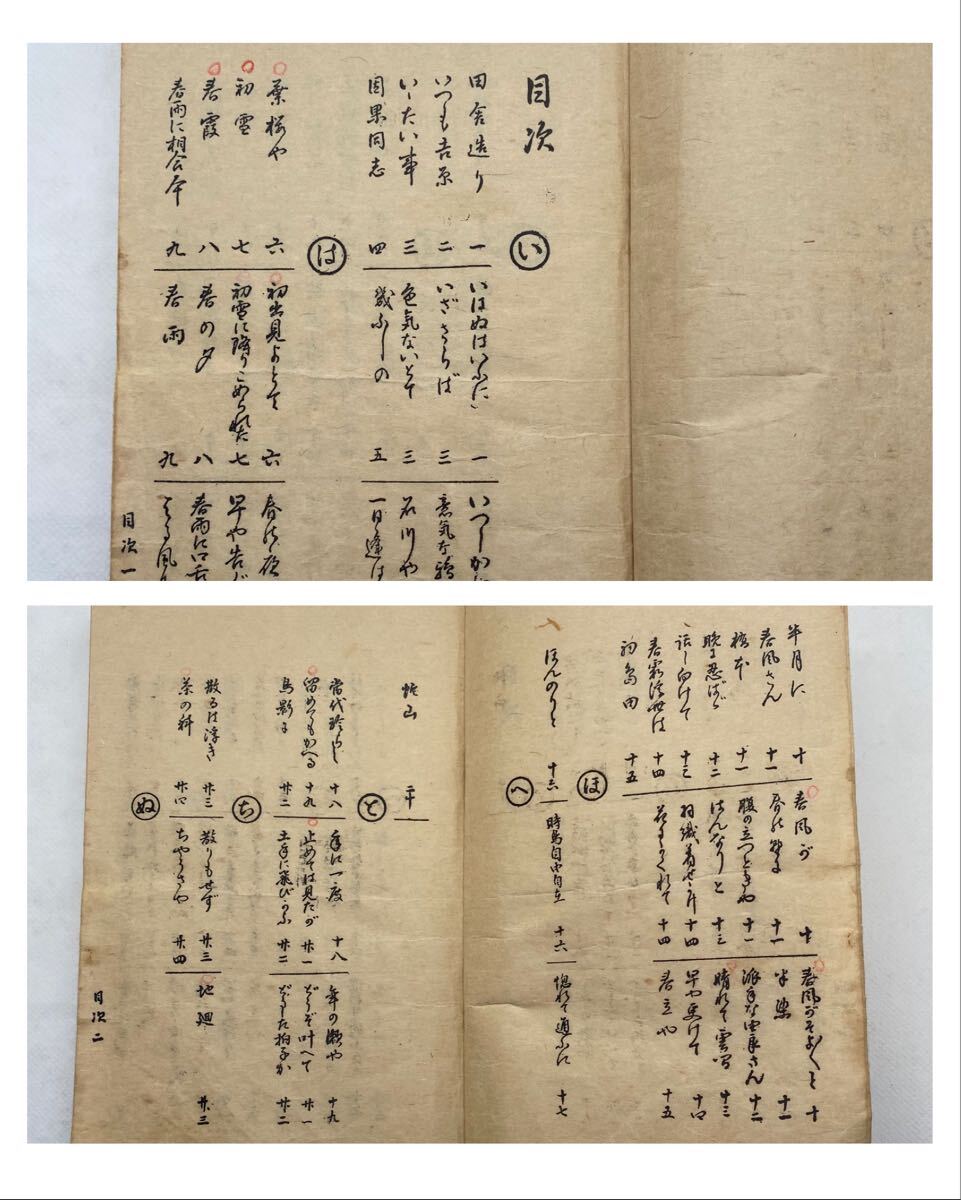 目次
い
田舎造り 一
いつも吉原 二
いたい事 三
因果同志 四
いはぬはいふに 一
いざさらば 三
色気ないとて 三
幾ふしの 五
いつしか
意気な
石川や
一日逢は
は
葉桜や 六
初雪 七
春霞 八
春雨に相合傘 九
初出見よとて 六
初雪に降りこめられた 七
春の夕 八
春雨 九
春の夜
早や告
春雨に
はる風
目次一
半月に 十
春風さん 十一
橋本 十一
晩に忍ばゞ 十二
話し向けて 十三
春霞浮世は 十四
初島田 十五
春風が 十
春の野 十一
腹の立つときや 十一
はんなりと 十三
羽織着せ 十四
花にかくれて 十四
春風がそよ〱と 十
半染 十一
派手な由良さん 十二
晴れて雲間 十三
早や更けて 十四
春立や 十五
ほ
ほんのりと 十六
時鳥自由自在 十六
惚れて通ふに 十七
へ
と
当代珍らし 十八
留めてもかへる 十九
鳥影に 廿二
手に一度 十八
止めては見たが 廿一
土手に飛びかふ 廿二
年の瀬や 十九
どうぞ叶へて 廿一
どうした拍子か 廿二
ち
散るは浮き 廿三
茶の科 廿四
散りもせず 廿三
ちやうさや 廿四
地廻 廿三
ぬ
目次二